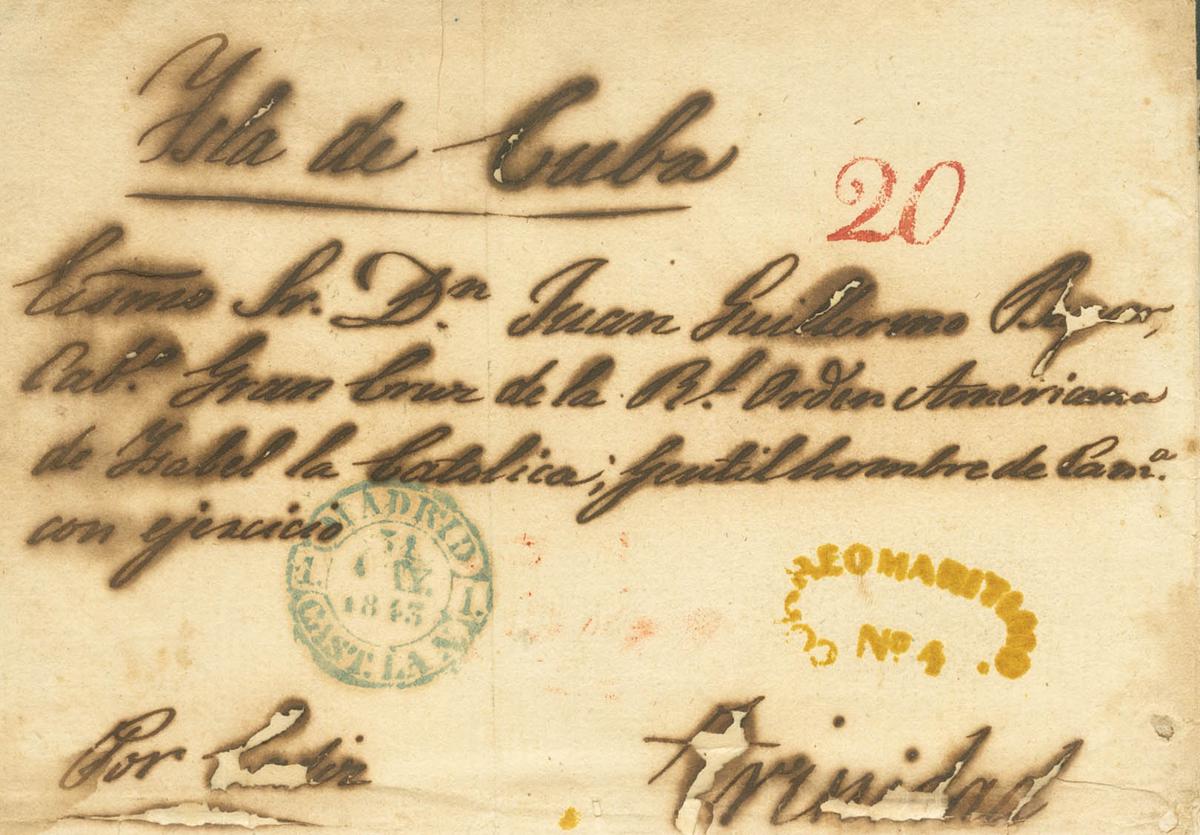 Ysla de Cuba
20
Ecsmo Sr. Dn. Juan Guillermo
Cab.o Gran Cruz de la Rl. Orden Americana
de Ysabel la Catolica; Gentilhombre de Cama.
con ejercicio
MADRID
31
1843
1. 1.
CAST. LA N.
CORREO MARITIMO
No. 4
Por Cadiz
Trinidad